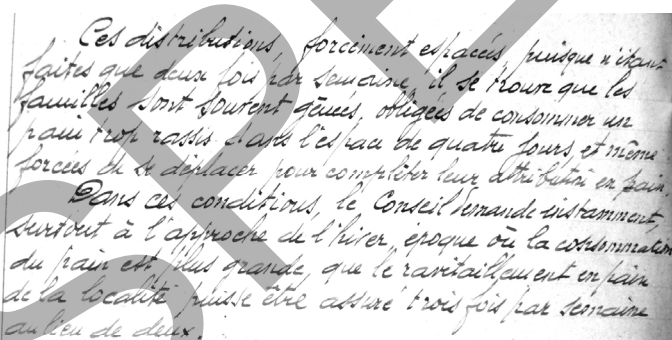 Ces distributions, forcément espacées puisque n'étant
faites que deux fois par semaine, il se trouve que les
familles sont souvent gênées, obligées de consommer un
pain trop rassis dans l'espace de quatre jours, et même
forcées de se déplacer pour compléter leur attribution en pain
Dans ces conditions, le Conseil demande instamment,
surtout à l'approche de l'hiver, époque où la consommation
du pain est plus grande, que le ravitaillement en pain
de la localité puisse être assuré trois fois par semaine
au lieu de deux.